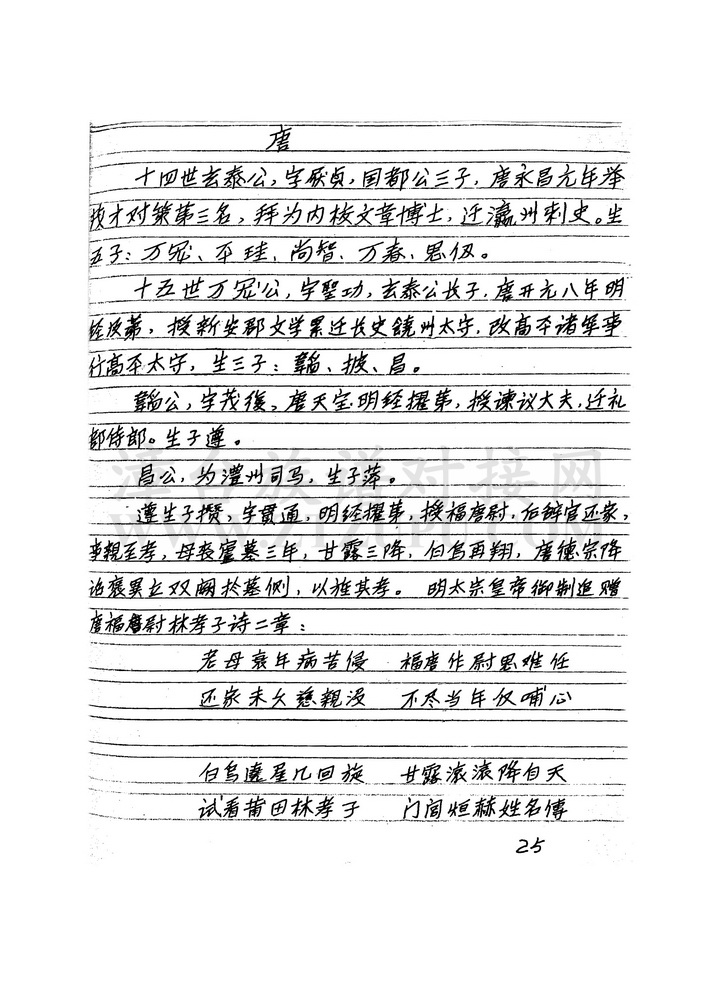 唐
十四世玄泰公，字厥贞，国都公三子，唐永昌元年举
拔才对策第三名，拜为内校文章博士，迁瀛州刺史。生
五子：万宠、平珪、尚智、万春、思伋。
十五世万宠公，字聖功，玄泰公长子，唐开元八年明
经及第，授新安郡文学累迁长史饒州太守，改高平诸军事
行高平太守，生三子：韜、披、昌。
韜公，字茂後。唐天宝明经擢第，授谏议大夫，迁礼
部侍郎。生子遵。
昌公，为澧州司马，生子萍。
遵生子攒，字贯通，明经擢第，授福唐尉，后辞官还家，
事親至孝，母丧廬墓三年，甘露三降，白乌再翔，唐德宗降
诏褒異立双阙於墓侧，以旌其孝。明太宗皇帝御制追赠
唐福唐尉林孝子诗二章：
老母衰年病苦侵 福唐作尉思难任
还家未久慈親没 不尽当年仅哺心
白乌遶屋几回旋 甘露滚滚降自天
试看莆田林孝子 门闾烜赫姓名傳
25
漳台族谱对接网